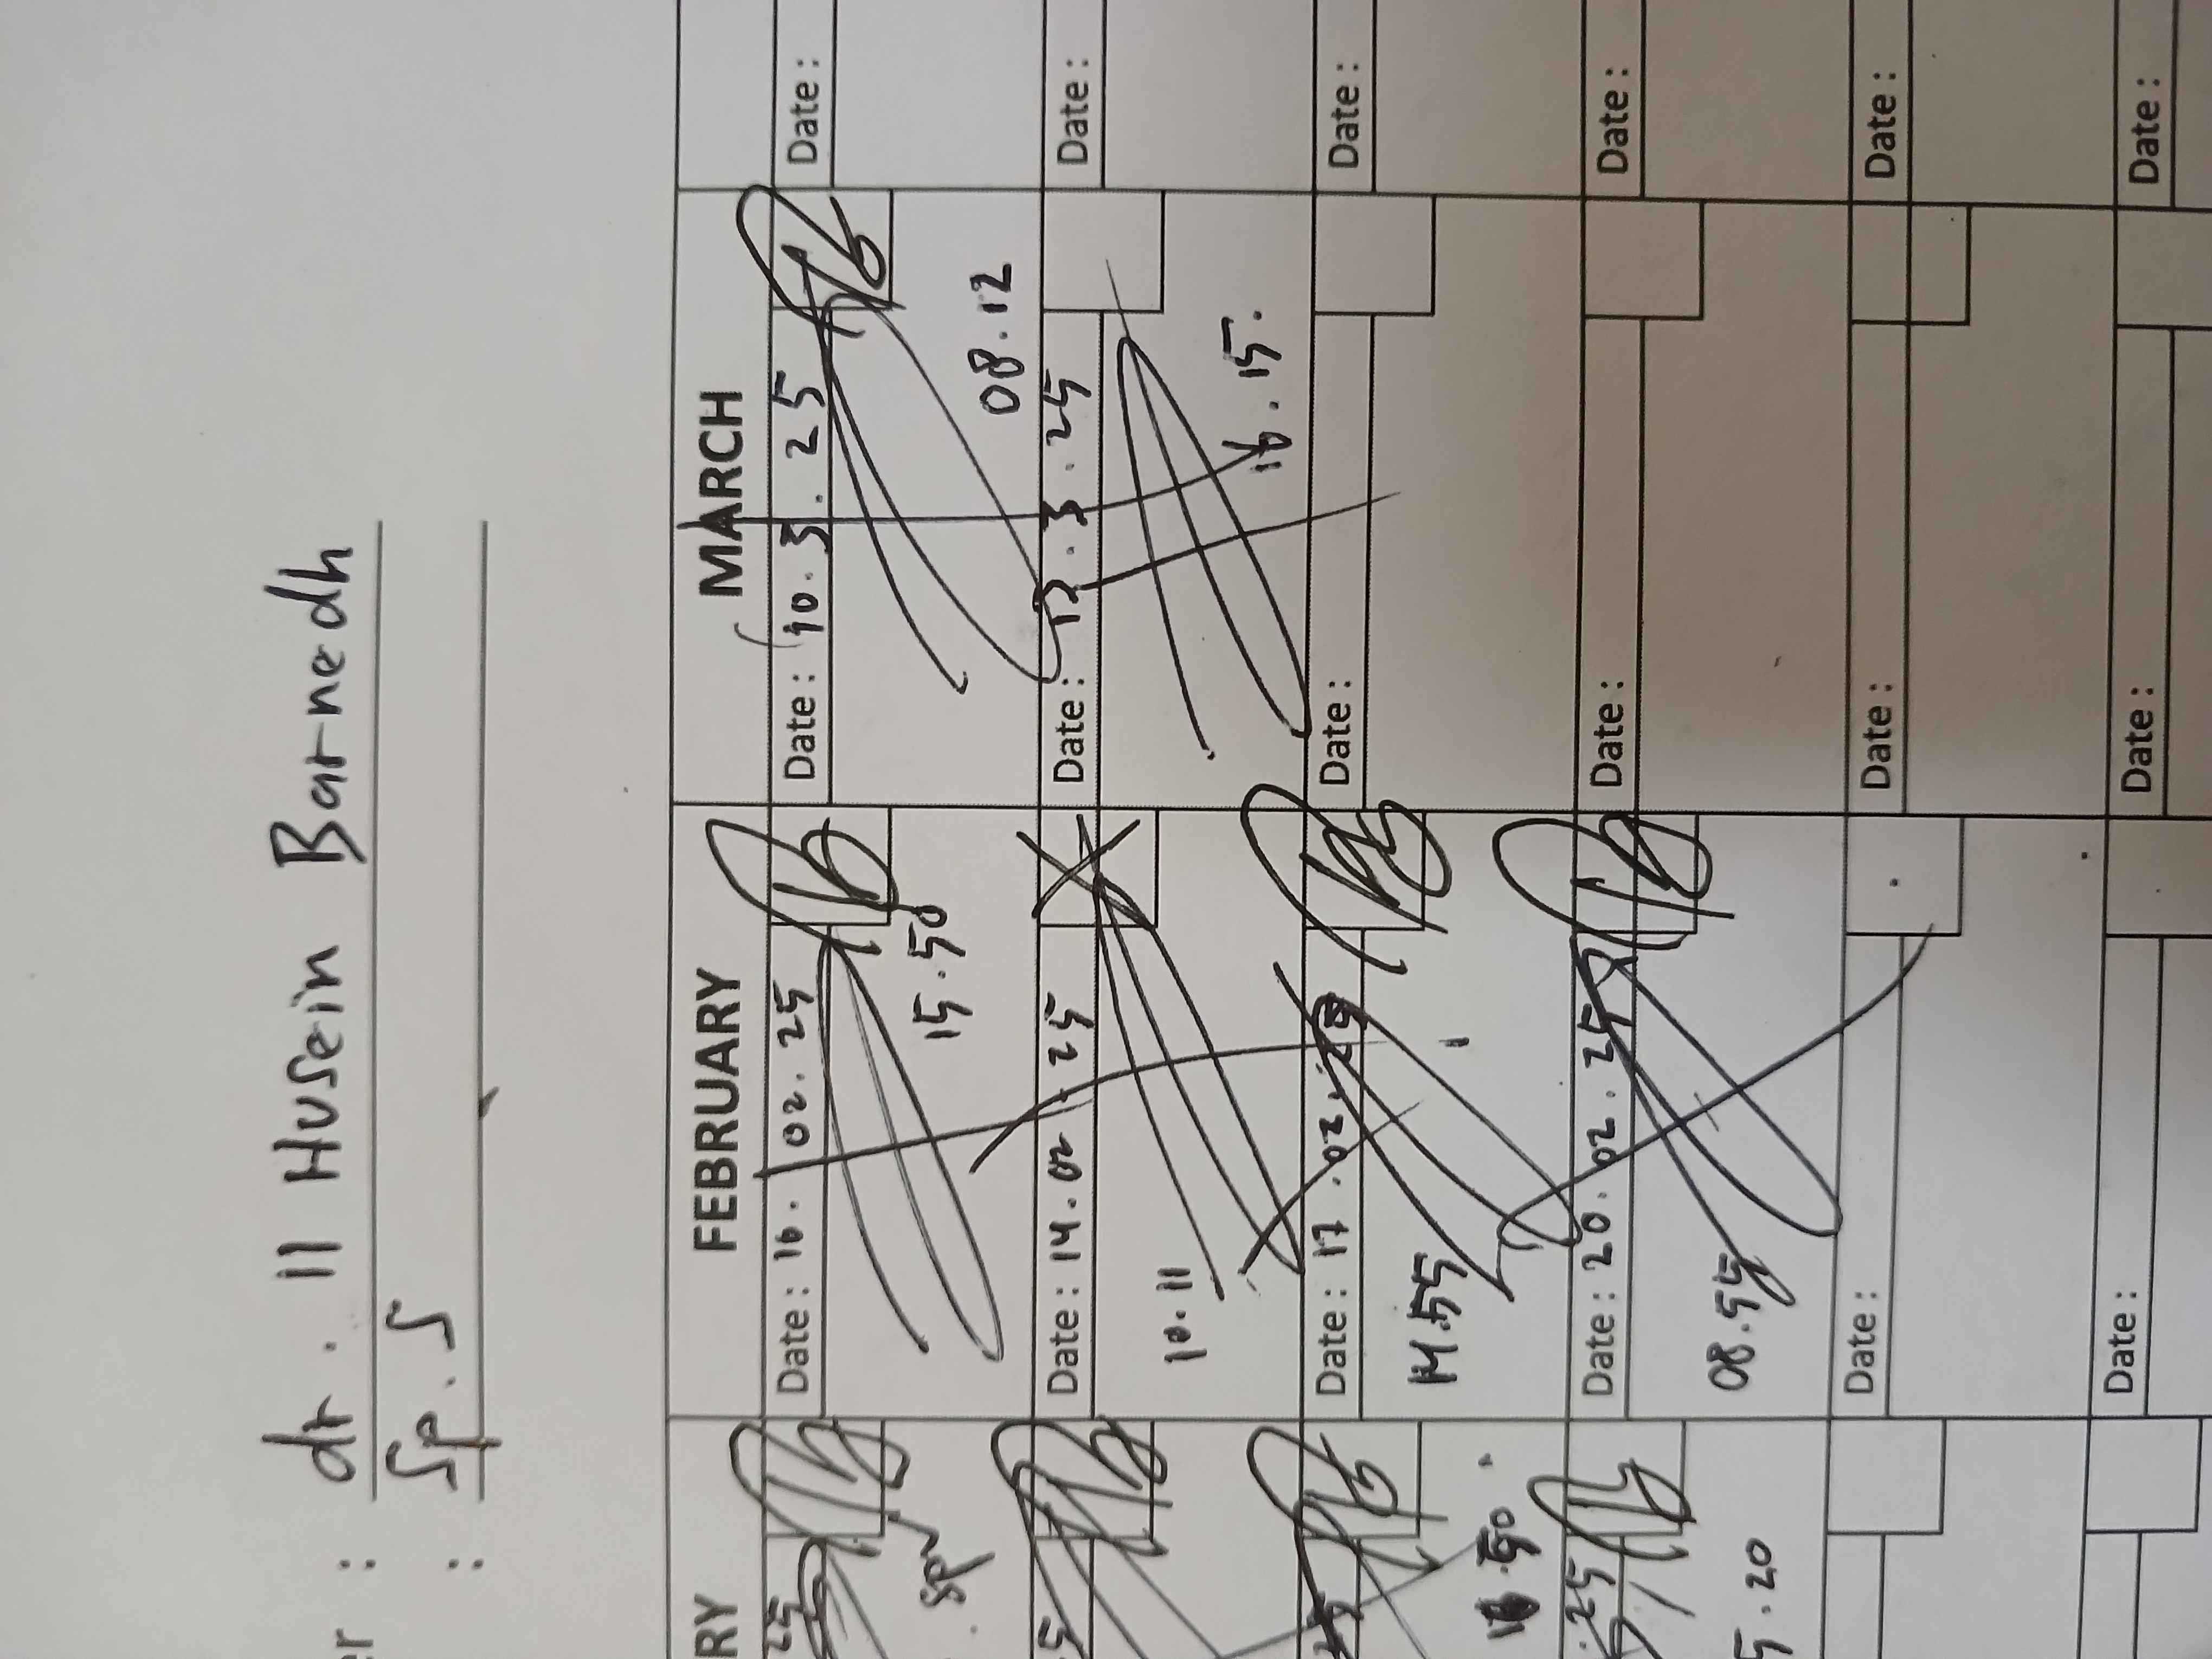 er : dr. Il Husein Barnedh
: Sp. S
RY FEBRUARY MARCH
25 Date : 10. 02. 25 Date : 10. 3. 25 Date :
15.50 08.12
5 Date : 14. 02. 25 Date : 13. 3. 25 Date :
10.11 16.15.
Date : 17. 02. 25 Date : Date :
50 14.55
.25 Date : 20. 02. 25 Date : Date :
5.20 08.55
Date : Date : Date :
Date : Date : Date :